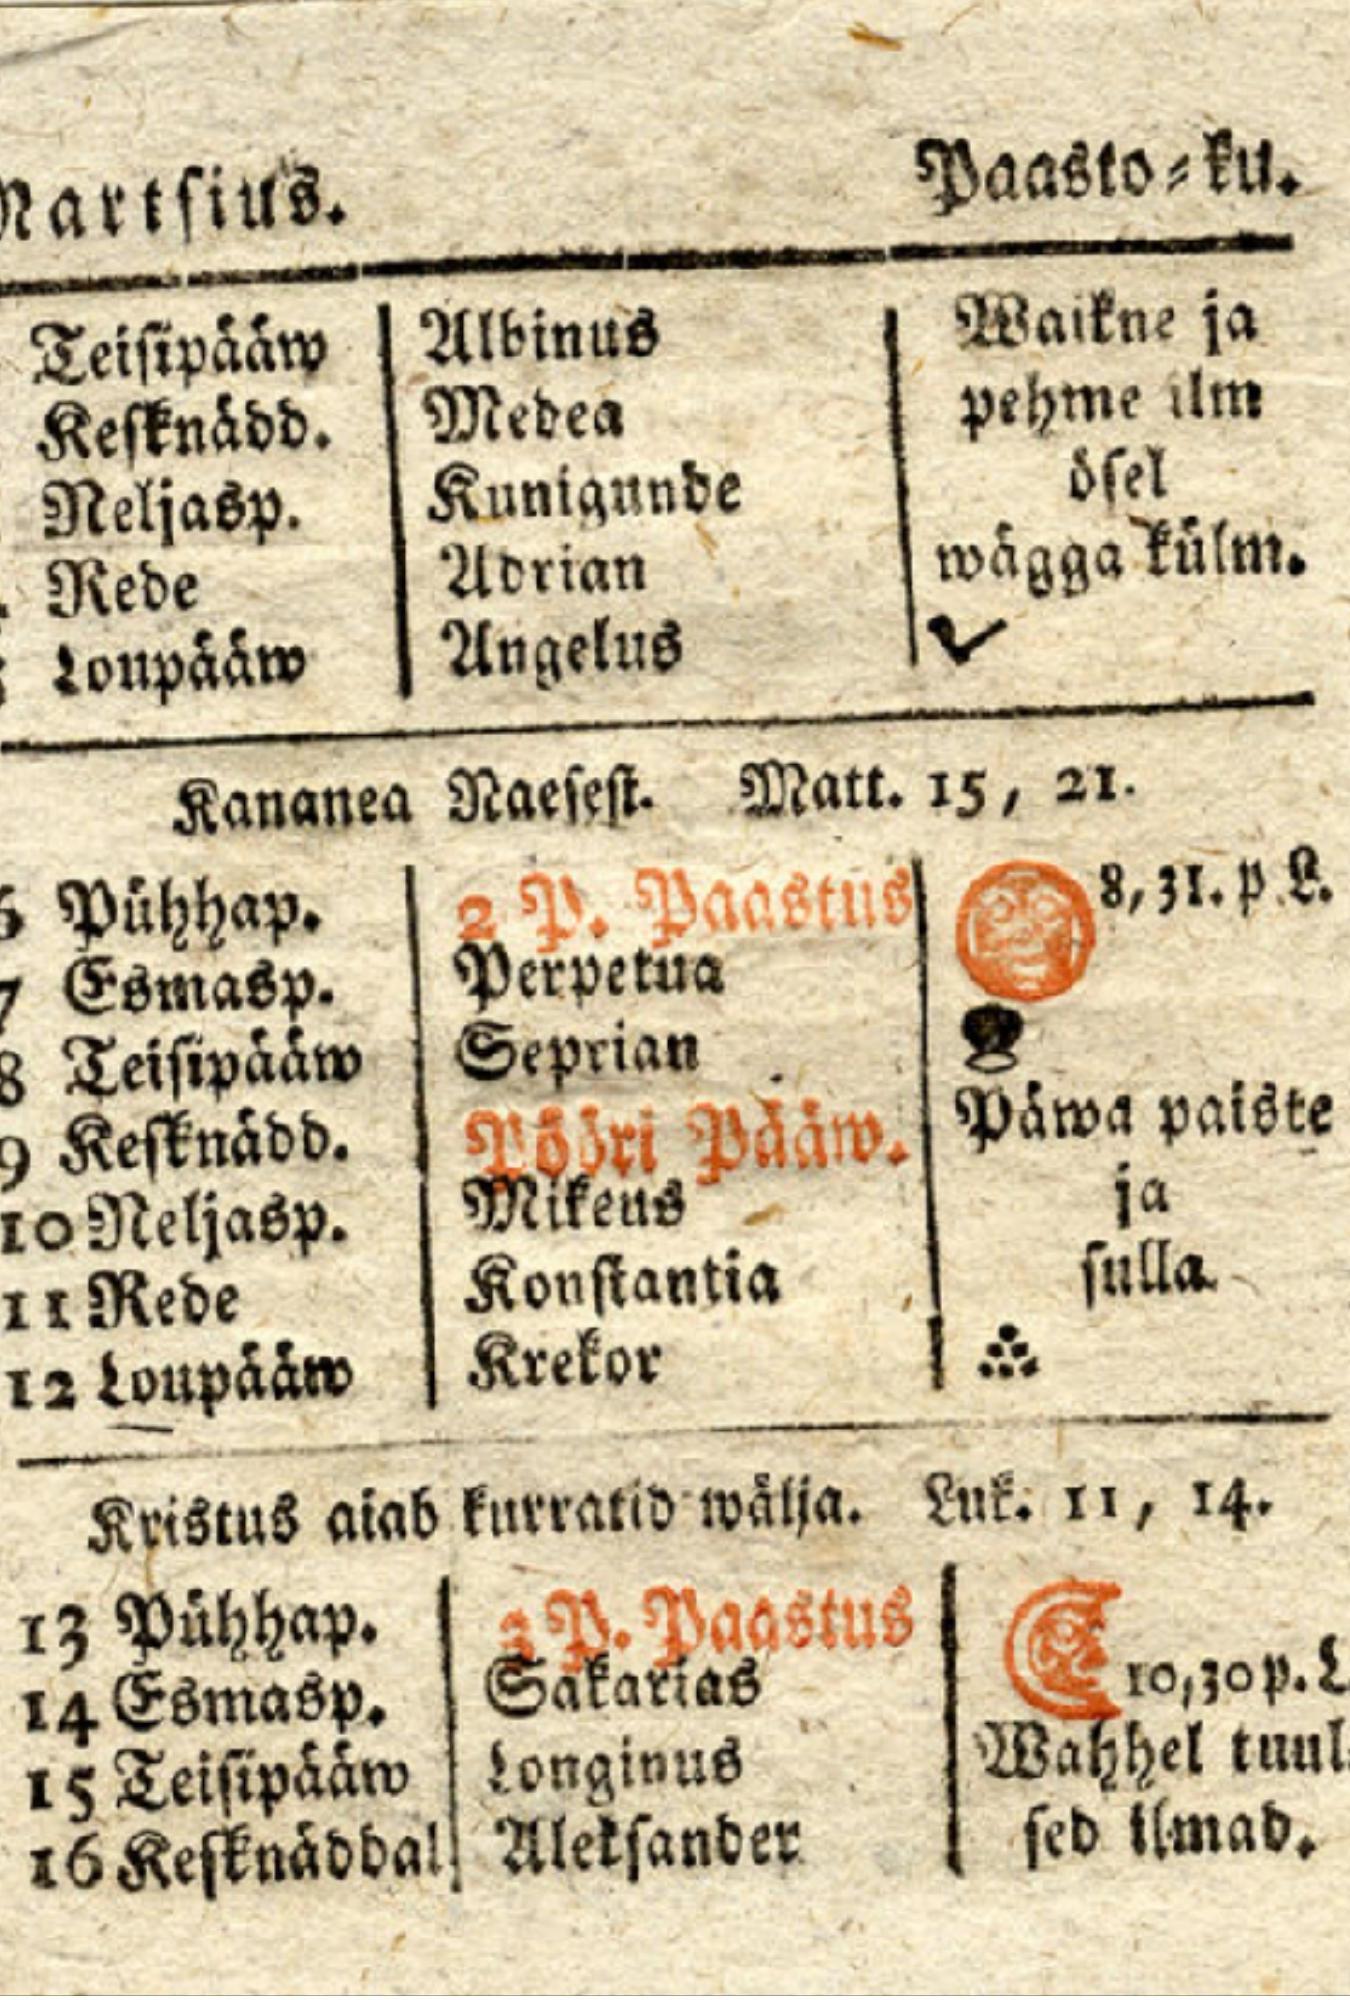 Martsius. Paasto-ku.
Teisipääw Albinus Waikne ja
Kesknädd. Medea pehme ilm
Neljasp. Kunigunde ösel
Rede Adrian wägga külm.
Loupääw Angelus
Kananea Naesest. Matt. 15, 21.
6 Pühhap. 2 P. Paastus 8, 31. p. L.
7 Esmasp. Perpetua
8 Teisipääw Seprian
9 Kesknädd. Pööri Pääw. Päwa paiste
10 Neljasp. Mikeus ja
11 Rede Konstantia sulla
12 Loupääw Krekor
Kristus aiab kurratid wälja. Luk. 11, 14.
13 Pühhap. 3 P. Paastus
14 Esmasp. Sakarias 10, 30 p. L.
15 Teisipääw Longinus Wahhel tuul-
16 Kesknäddal Aleksander sed ilmad.